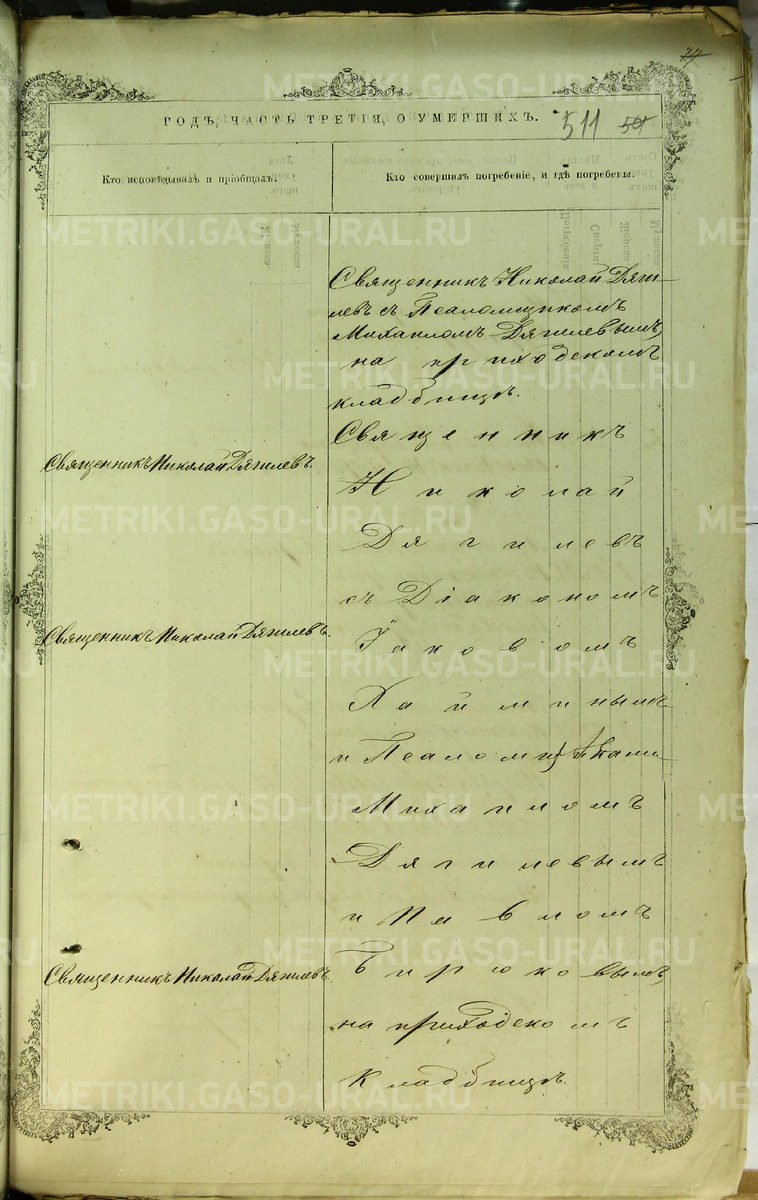 77
ГОДЪ, ЧАСТЬ ТРЕТІЯ, О УМЕРШИХЪ.
511 50
Кто исповѣдывалъ и пріобщалъ.
Кто совершалъ погребеніе, и гдѣ погребены.
Священникъ Николай Дяги-
левъ съ Псаломщикомъ
Михаиломъ Дягилевымъ,
на приходскомъ
кладбищѣ.
Священникъ
Священникъ Николай Дягилевъ.
Николай
Дягилевъ
съ Діакономъ
Священникъ Николай Дягилевъ.
Іаковомъ
и Псаломщиками
Михаиломъ
Дягилевымъ
и Павломъ
Священникъ Николай Дягилевъ.
Бирюковымъ,
на приходскомъ
кладбищѣ.
METRIKI.GASO-URAL.RU